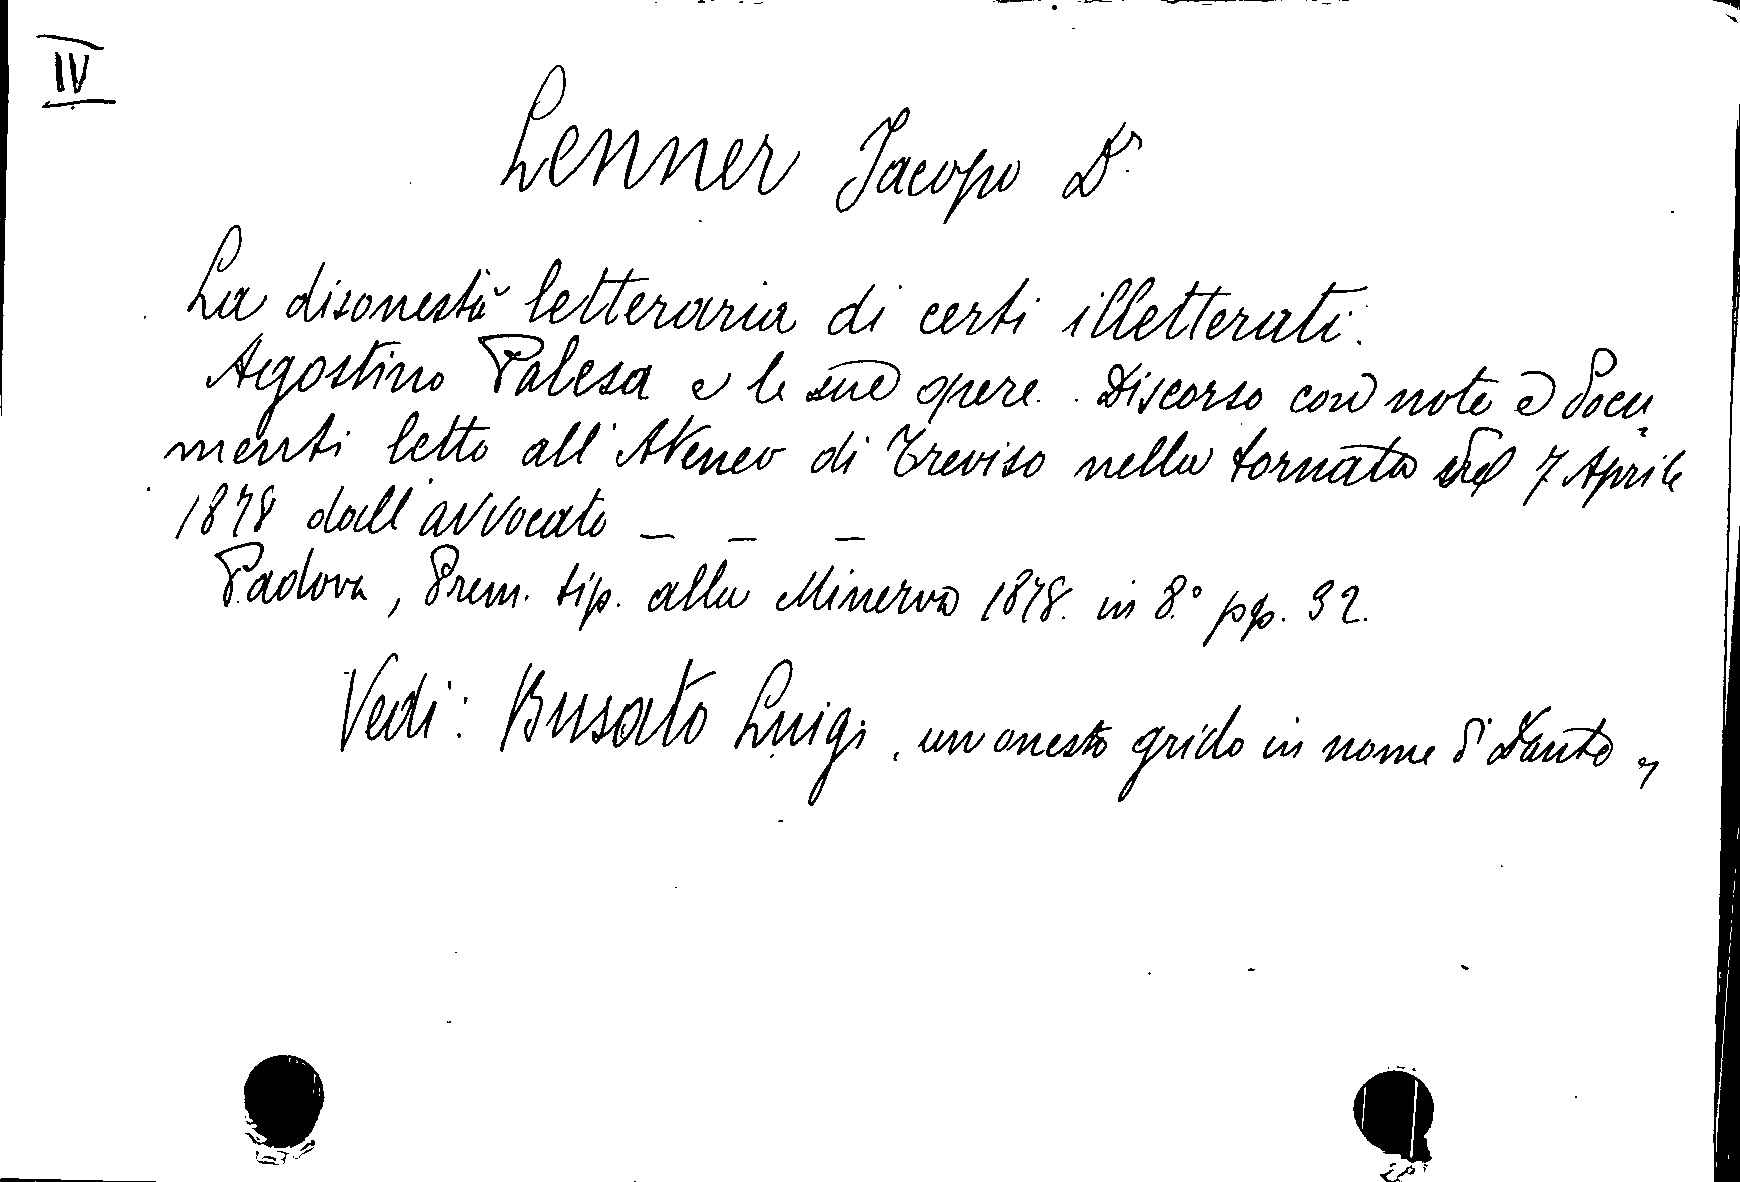 IV
Lenner Jacopo Dr.
La disonestà letteraria di certi illetterati.
Agostino Palesa e le sue opere. Discorso con note e docu
menti letto all'Ateneo di Treviso nella tornata del 7 Aprile
1878 dall'avvocato _ _ _
Padova, Prem. tip. alla Minerva 1878. in 8.° pp. 32.
Vedi: Busato Luigi, un onesto grido in nome d'Dante "